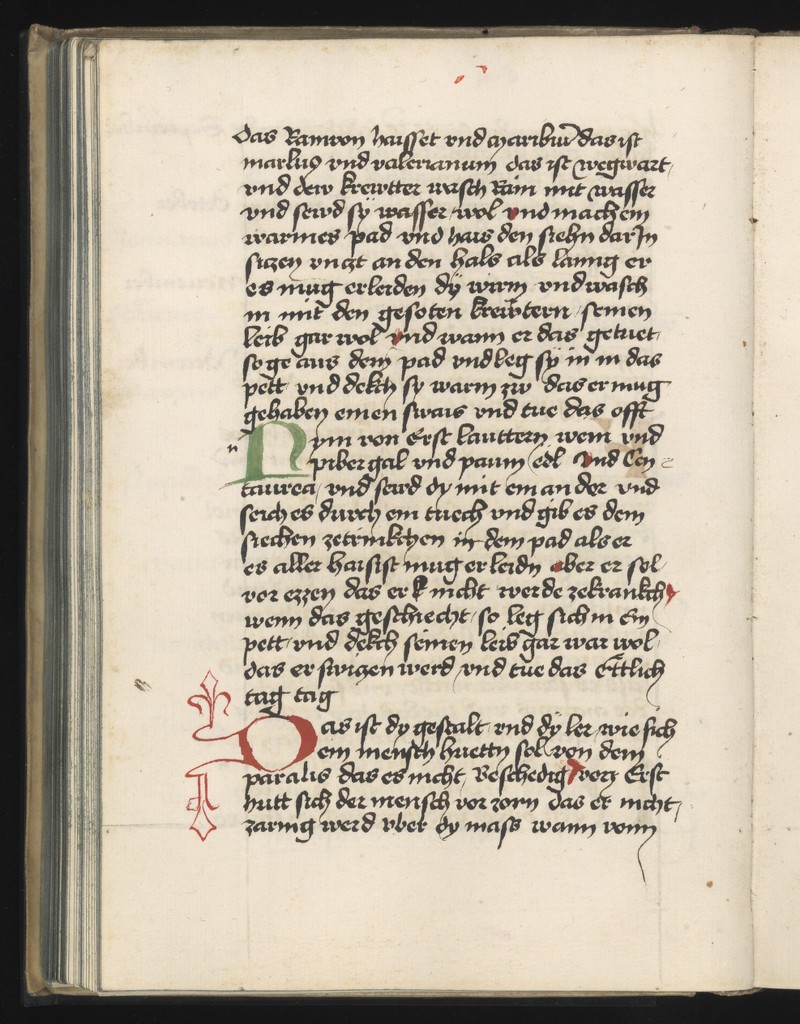 das Ramron haisset vnd maribuͤ das ist
marlug vnd valerianum das ist wegwart
vnd dew krewtter wasch kain mit wasser
vnd sewd sÿ wasser wol vnd mach em
warmes pad vnd hais den siehn darJn
siczen vnczt an den hals als lanng er
es mug erleiden dÿ wirm vnd wasch
in mit den gesoten krewtern seinen
leib gar wol vnd wann er das getuet
so ge aus dem pad vnd leg sÿ in in das
pett vnd dekch sy warm zw das er mug
gehaben einen swais vnd tue das offt
Nym von Erst lauttern wein vnd
pibergal vnd paum edl vnd Cen
taurea vnd sewd dy mit ein an der vnd
seich es durch ein tuech vnd gib es dem
siechen zetrinkchen in dem pad als er
es aller haisist mug erleidn aber er sol
vor ezzen das er nicht werde zekrankch
wenn das geschiecht so leg sich in Ein
pett vnd dekch seinen leib gar war wol
das er swiczen werd vnd tue das Ettlich
tag tag
Das ist dy gestalt vnd dÿ ler wie sich
ein mensch huettn sol von dem
paralis das es nicht Beschedig vorg Erst
hutt sich der mensch vor zorn das er nicht
zarnig werd vber dy mass wann vonn